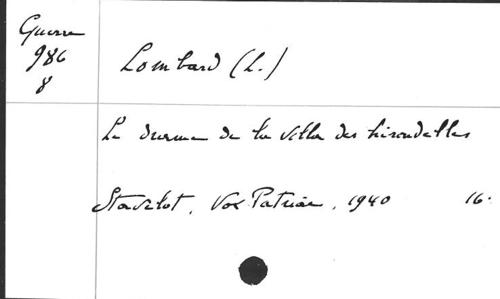 Guerre
986
8
Lombard (L.)
Le drame de la villa des hirondelles
Stavelot, Vox Patriae, 1940 16.